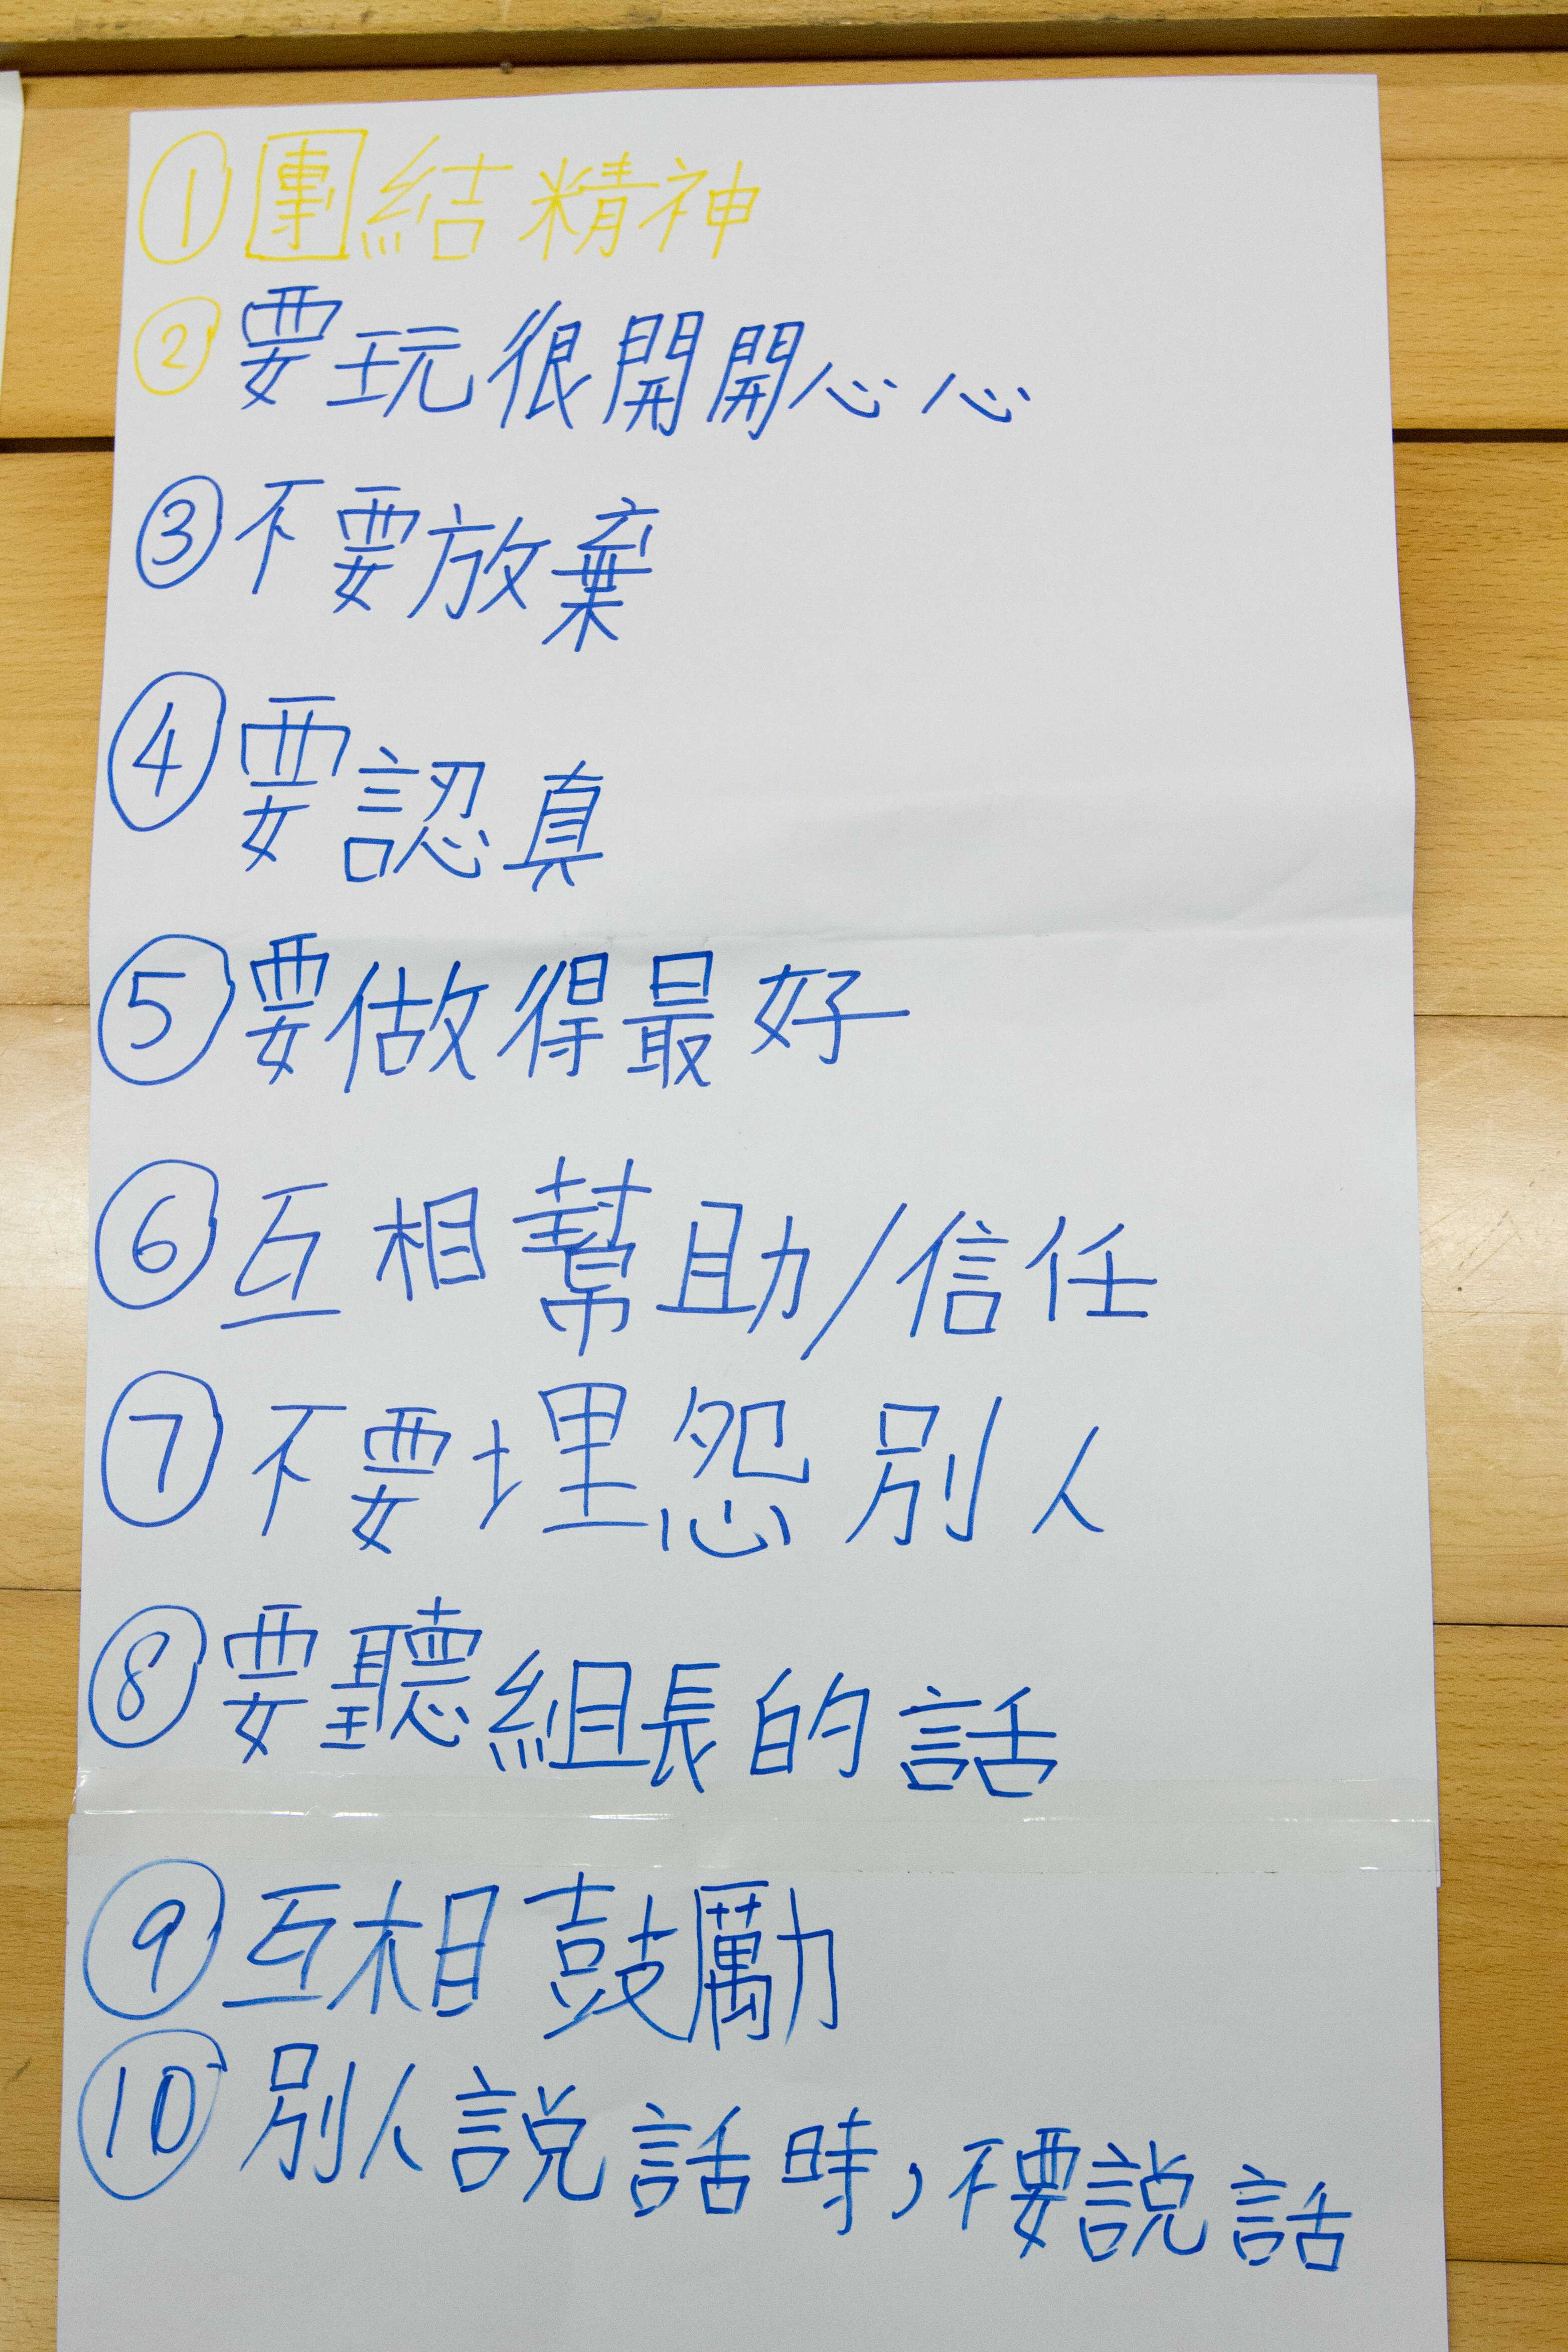 ①團結精神
②要玩很開開心心
③不要放棄
④要認真
⑤要做得最好
⑥互相幫助/信任
⑦不要埋怨別人
⑧要聽組長的話
⑨互相鼓勵
⑩別人說話時,不要說話